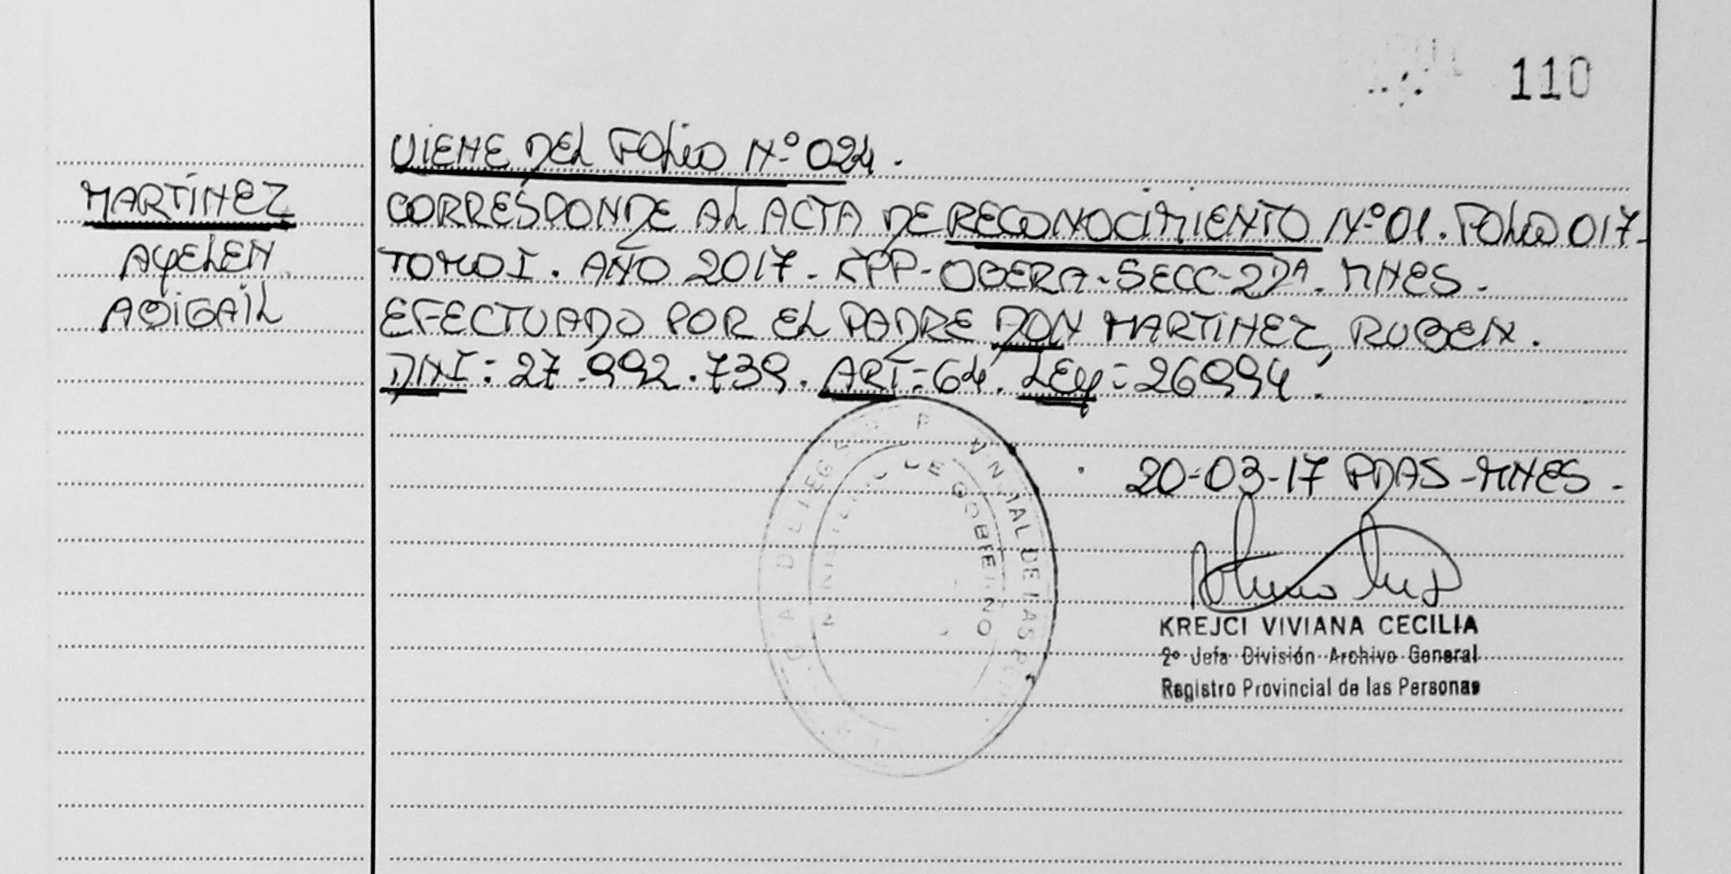 110
VIENE DEL FOLIO N.º 024.
MARTÍNEZ
AYELEN
ABIGAÍL
CORRESPONDE AL ACTA DE RECONOCIMIENTO N.º 01. FOLIO 017-
TOMO I. AÑO 2017-RPP-OBERA-SECC-2DA. MNES-
EFECTUADO POR EL PADRE DON MARTINEZ, RUBEN.
DNI: 27.992.739. ART=64. LEY=26994.
20-03-17 PDAS-MNES-
KREJCI VIVIANA CECILIA
2º Jefa División Archivo General
Registro Provincial de las Personas
DE GOBIERNO